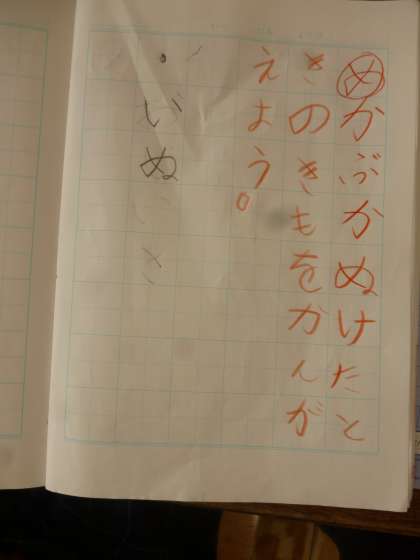 めかぶかぬけたと
きのきもをかんが
えよう。
がぬ